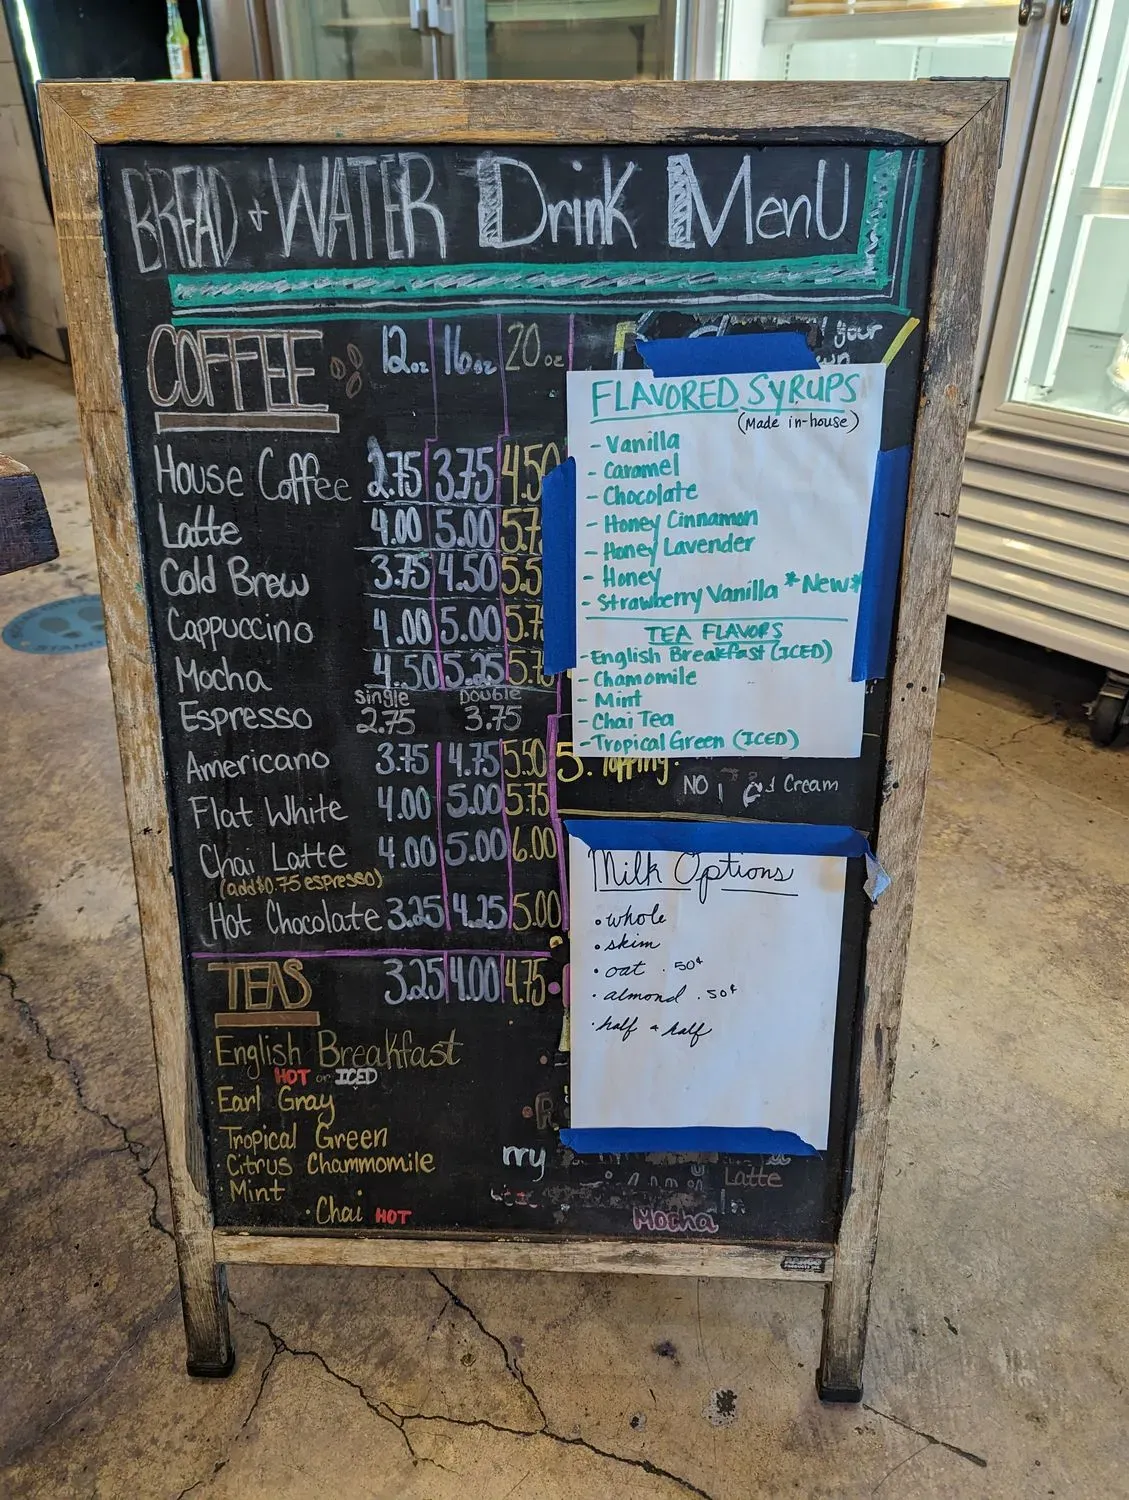 BREAD + WATER Drink MenU
COFFEE 12oz 16oz 20oz
House Coffee 2.75 3.75 4.50
Latte 4.00 5.00 5.7
Cold Brew 3.75 4.50 5.5
Cappuccino 4.00 5.00 5.7
Mocha 4.50 5.25 5.7
Single Double
Espresso 2.75 3.75
Americano 3.75 4.75 5.50
Flat White 4.00 5.00 5.75
Chai Latte 4.00 5.00 6.00
(add $0.75 espresso)
Hot Chocolate 3.25 4.25 5.00
TEAS 3.25 4.00 4.75
English Breakfast
HOT or ICED
Earl Gray
Tropical Green
Citrus Chammomile
Mint
• Chai HOT
your
FLAVORED SYRUPS
(Made in-house)
- Vanilla
- Caramel
- Chocolate
- Honey Cinnamon
- Honey Lavender
- Honey
- Strawberry Vanilla *New*
TEA FLAVORS
- English Breakfast (ICED)
- Chamomile
- Mint
- Chai Tea
- Tropical Green (ICED)
5. Topping.
NO Cream
Milk Options
• whole
• skim
• oat .50¢
• almond .50¢
• half & half
Latte
Mocha